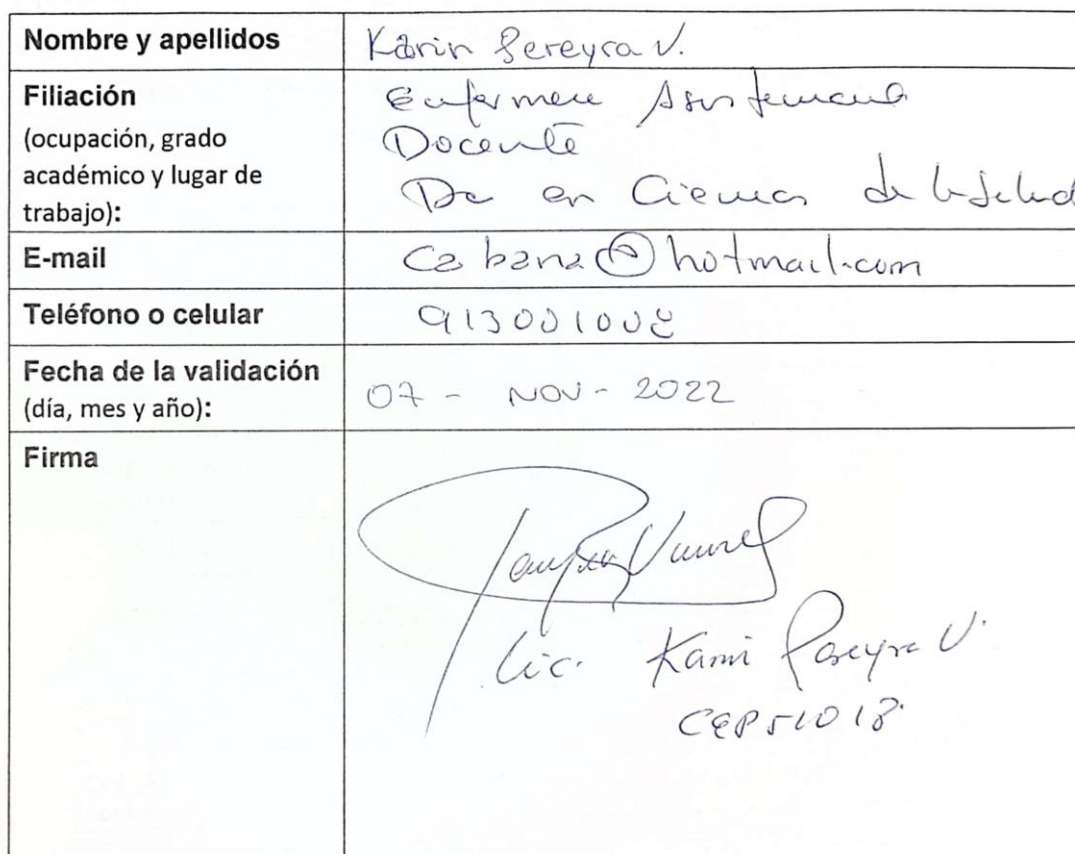 Nombre y apellidos
Karin Pereyra V.
Filiación
(ocupación, grado
académico y lugar de
trabajo):
Enfermera Asistencial
Docente
Dra en Ciencias de la Salud
E-mail
Cabana@hotmail.com
Teléfono o celular
913001008
Fecha de la validación
(día, mes y año):
07 - NOV - 2022
Firma
Lic. Karin Pereyra V.
CEP 51018